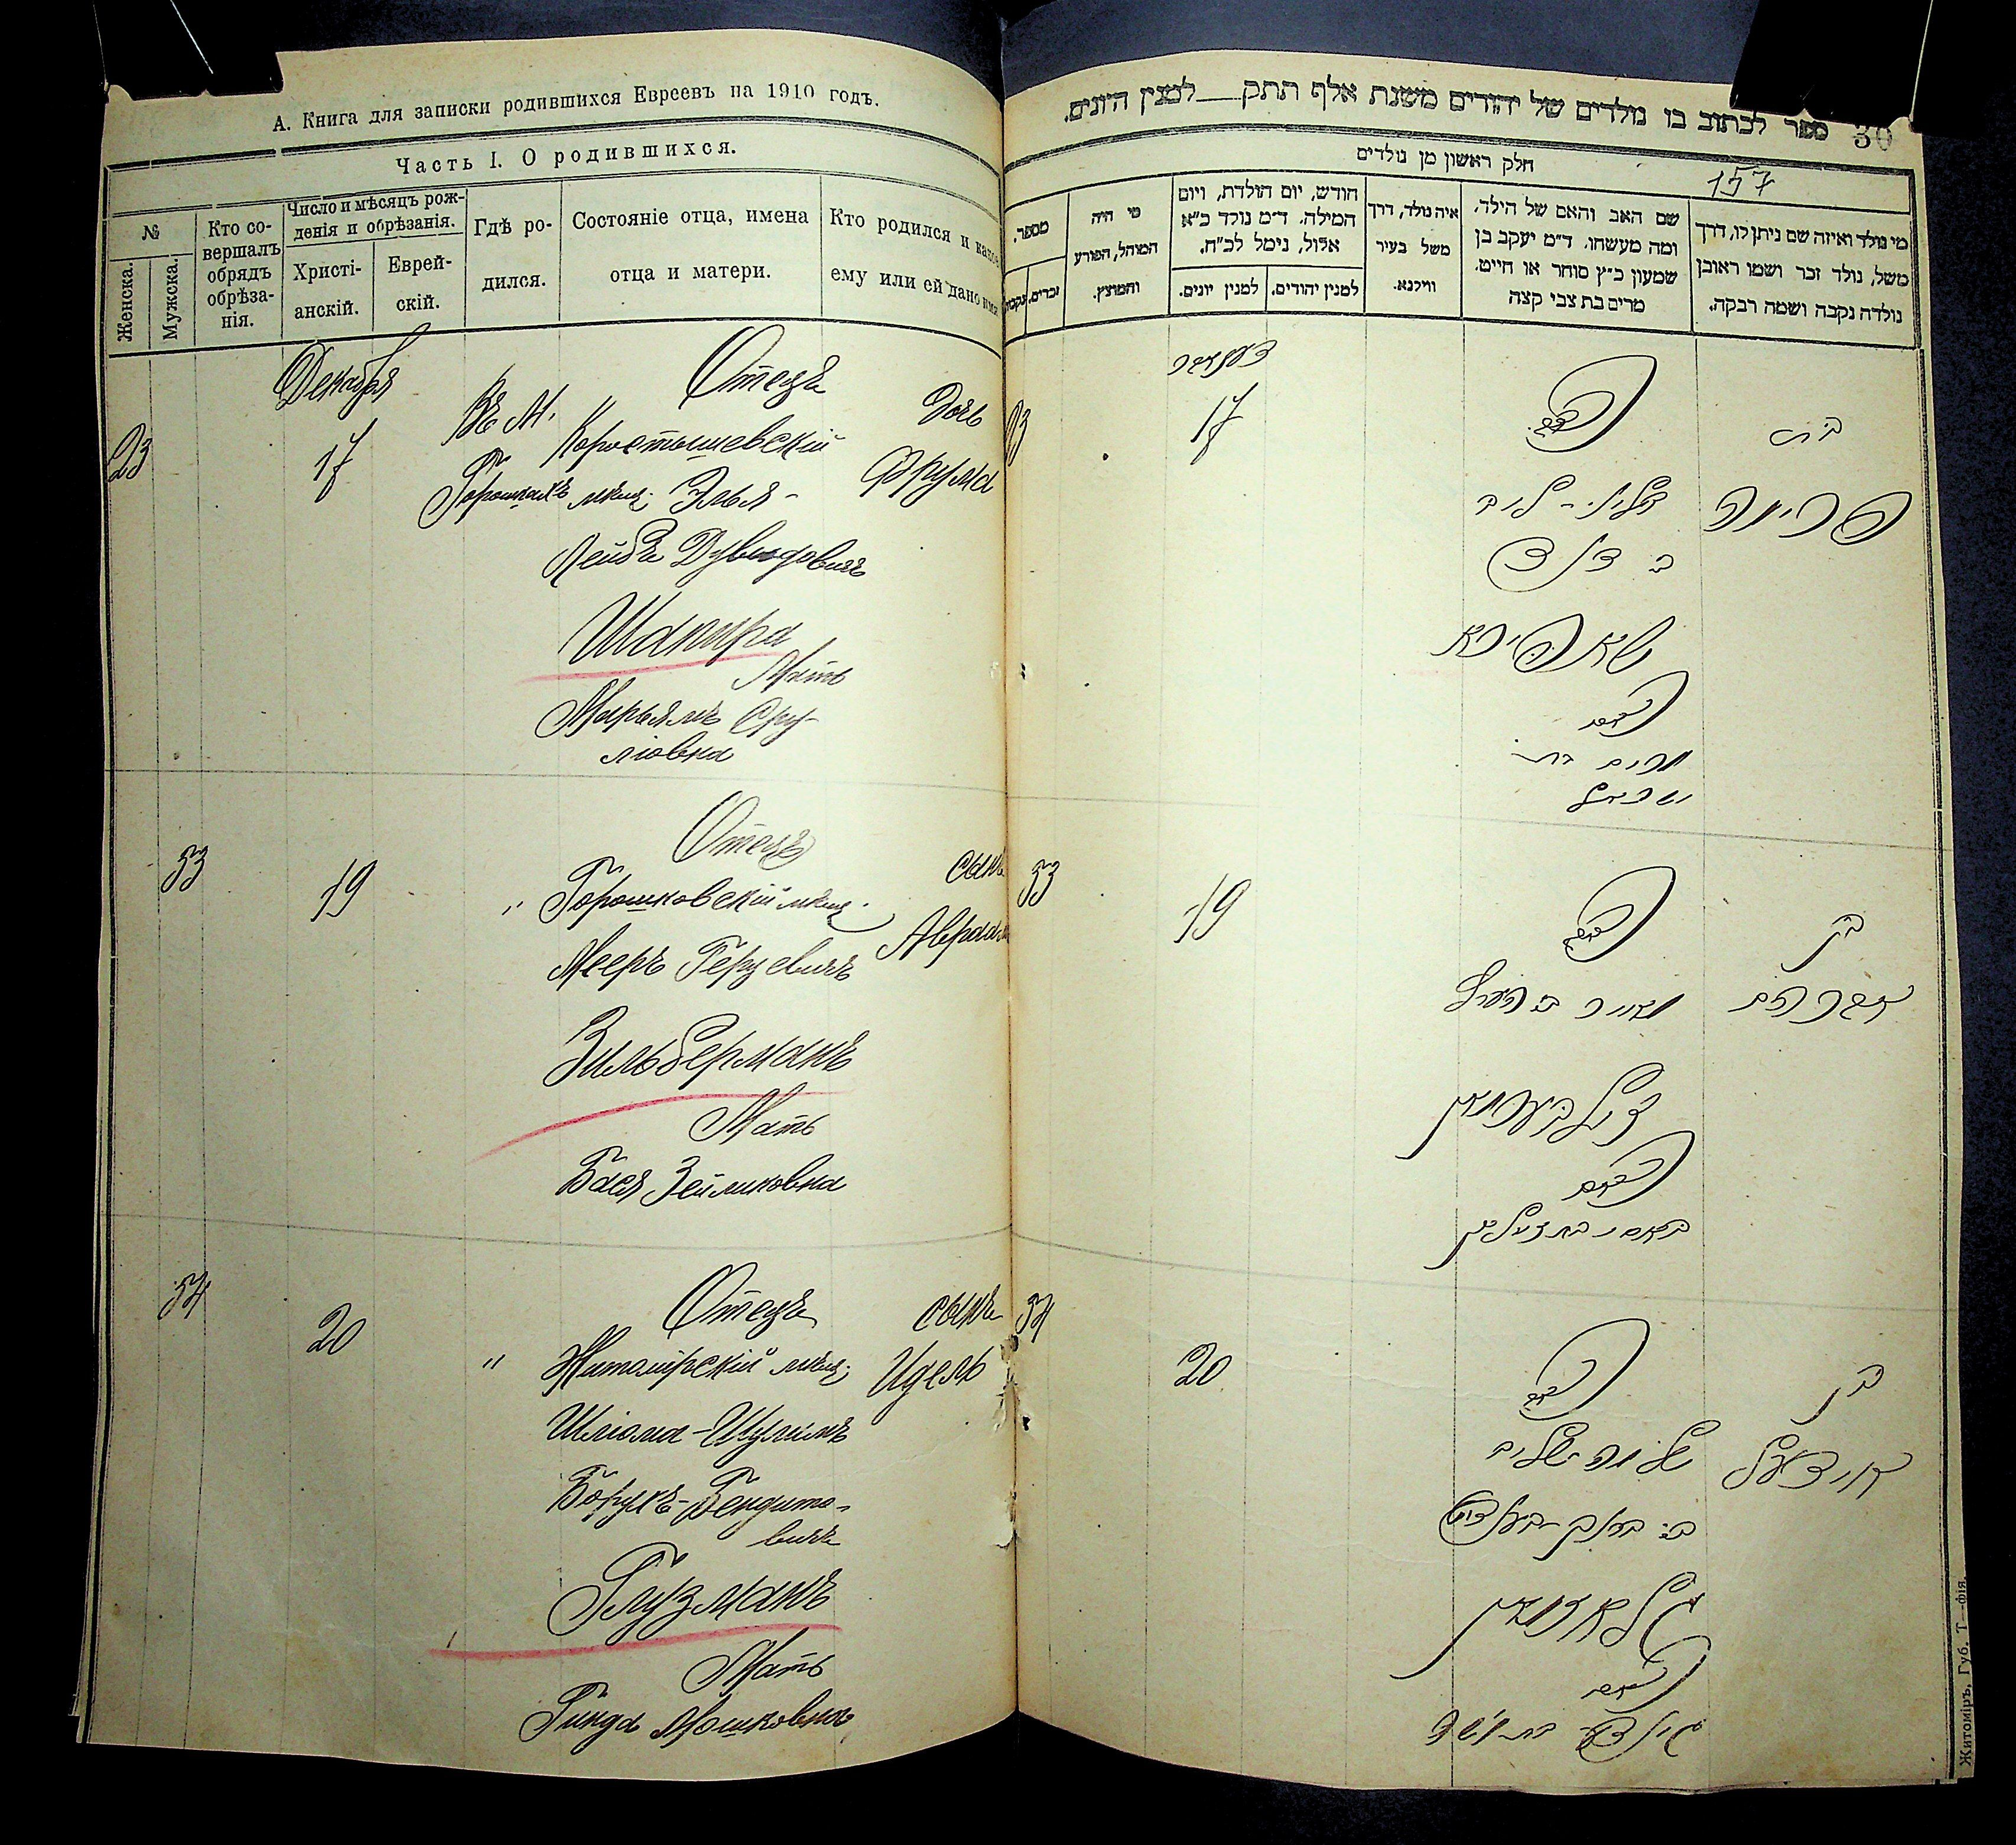 А. Книга для записки родившихся Евреевъ на 1910 годъ.
Часть I. О родившихся.
№
Женска.
Мужска.
Кто совершалъ обрядъ обрѣзанія.
Число и мѣсяцъ рожденія и обрѣзанія.
Христіанскій.
Еврейскій.
Гдѣ родился.
Состояніе отца, имена отца и матери.
Кто родился и какое ему или ей дано имя
Декабря
23
17
Въ м.
Горошкахъ
Отецъ
Коростышевскій
мѣщ. Элья-
Лейбъ Дувидовичъ
Шапира
Мать
Марьямъ Сру-
лiовна
Дочь
Фрума
33
19
"
Отецъ
Горошковскій мѣщ.
Мееръ Герцевичъ
Зильберманъ
Мать
Бася Зейликовна
сынъ
Авраам
34
20
"
Отецъ
Житомірскій мѣщ.
Шлiома-Шулимъ
Борухъ-Бендито-
вичъ
Глузманъ
Мать
Гинда Мошковна
сынъ
Идель
ספר לכתוב בו נולדים של יהודים משנת אלף תתק למנין היונים.
30
חלק ראשון מן נולדים
157
מספר.
זכרים.
נקבות
מי היה המוהל, הפורע והמוצץ.
חודש, יום הולדת, ויום המילה. ד״מ נולד כ״א אלול, נימל לכ״ח.
למנין יונים.
למנין יהודים.
איה נולד, דרך משל בעיר ווילנא.
שם האב והאם של הילד. ומה מעשהו. ד״מ יעקב בן שמעון כ״ץ סוחר או חייט. מרים בת צבי קצה
מי נולד ואיזה שם ניתן לו, דרך משל, נולד זכר ושמו ראובן נולדה נקבה ושמה רבקה.
23
17
שאפירא
מרים בת
ישראל
בת
פרומה
33
19
מאיר ב׳ הערץ
זילבערמאן
בן
אברהם
34
20
גלאזמאן
בן
אידעל
Житоміръ, Губ. Т—фія.